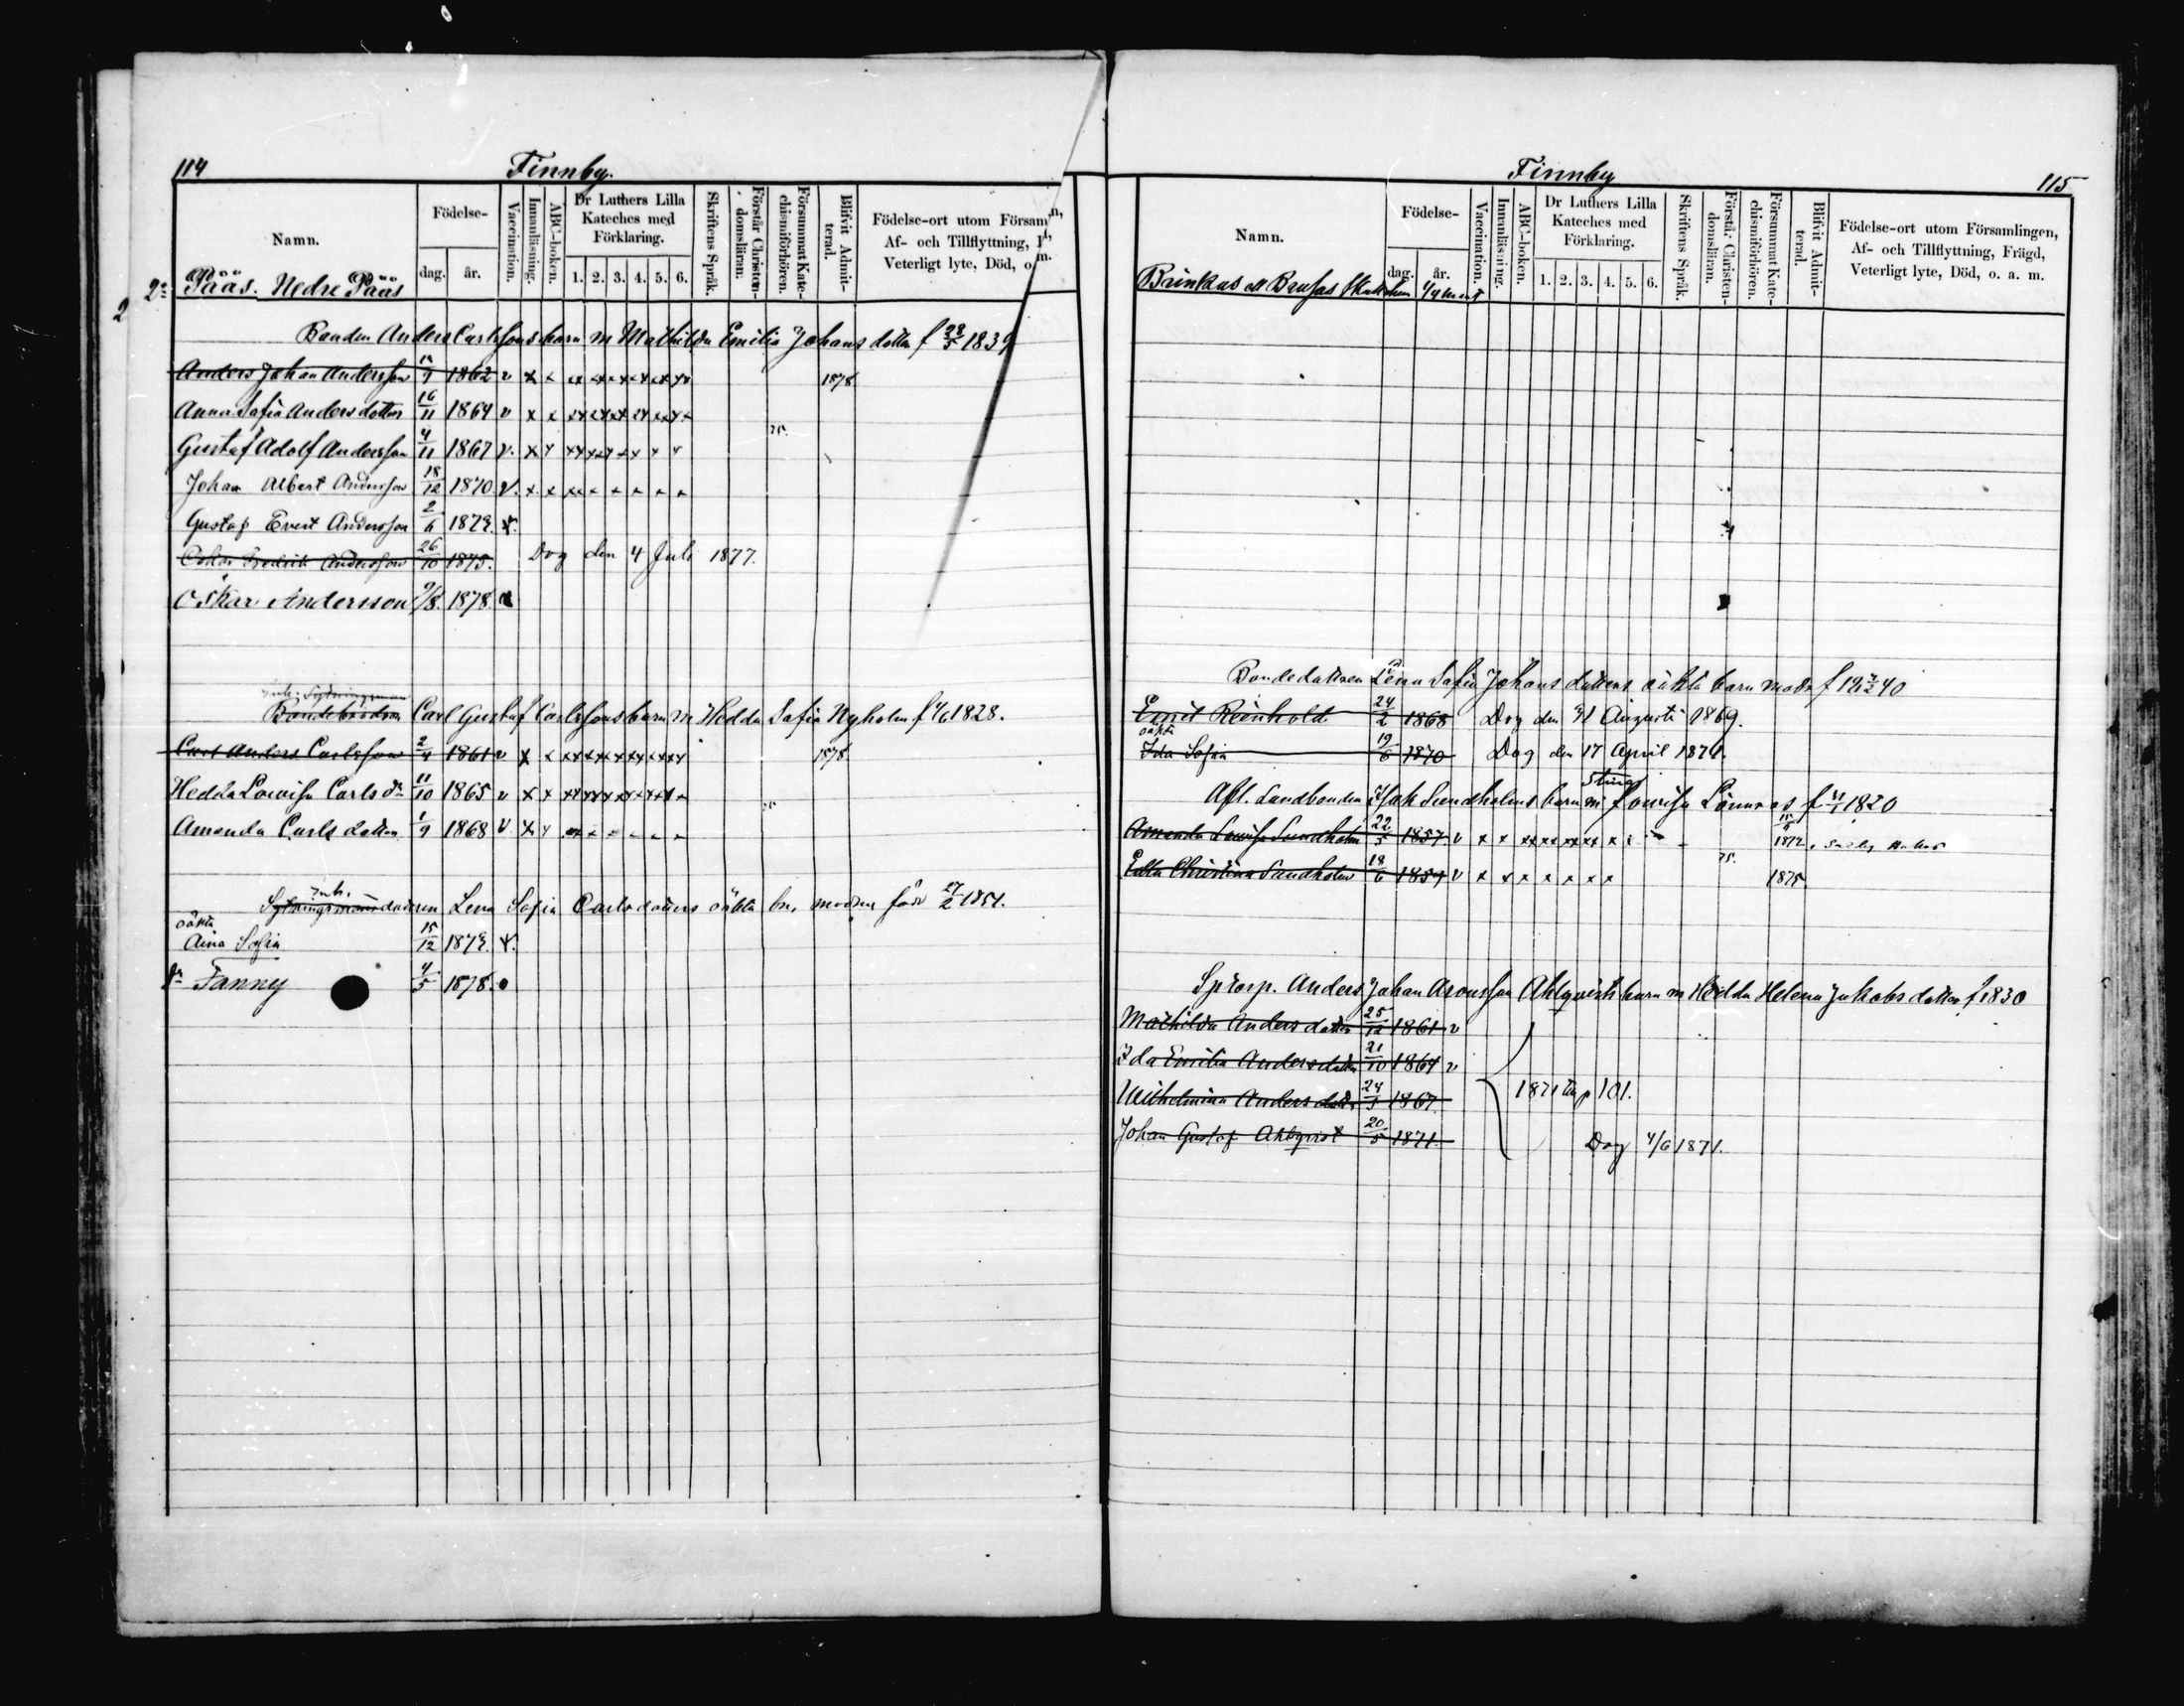 114 Finnby.
Namn. Födelse- dag. år. Vaccination. Innanläsning. ABC-boken. Dr Luthers Lilla Kateches med Förklaring. 1. 2. 3. 4. 5. 6. Skriftens Språk. Förstår Christendomsläran. Försummat Katechismiförhören. Blifvit Admitterad. Födelse-ort utom Församl
Af- och Tillflyttning,
Veterligt lyte, Död, o. m.
2 Pääs. Nedre Pääs
Bonden Anders Carlssons barn m Mathilda Emilia Johans dotter f 28/5 1839
Anders Johan Andersson 1862 v 1878
Anna Sofia Anders dotter 16/11 1864 v
75.
Gustaf Adolf Andersson 4/11 1867 v.
Johan Albert Andersson 18/12 1870 v.
Gustaf Evert Andersson 2/6 1873.
Oskar Fredrik Andersson 26/10 1875. Dog den 4 Juli 1877.
Oskar Andersson 9/8 1878
inh. Sytningsman
Bondebrodren Carl Gustaf Carlssons barn m Hedda Sofia Nyholm f 1828.
Carl Anders Carlsson 2/4 1861 v 1878
Hedda Lovisa Carls dr 11/10 1865 v
75
Amanda Carls dotter 1/9 1868 v
inh.
Sytningsmansdotteren Lena Sofia Carlsdotters oäkta bn, modren född 27/2 1851.
oäkta
Aina Sofia 15/12 1873.
Fanny 4/5 1878.
Finnby 115
Namn. Födelse- dag. år. Vaccination. Innanläsning. ABC-boken. Dr Luthers Lilla Kateches med Förklaring. 1. 2. 3. 4. 5. 6. Skriftens Språk. Förstår Christendomsläran. Försummat Katechismiförhören. Blifvit Admitterad. Födelse-ort utom Församlingen,
Af- och Tillflyttning, Frägd,
Veterligt lyte, Död, o. a. m.
Brinkas Brusas
Bondedottren Lena Sofia Johans dotters oäkta barn modr f
Ernst Reinhold 24/2 1868 Dog den 31 Augusti 1869.
oäkta
Ida Sofia 19/6 1870 Dog den 17 April 1871.
Stina
Afl. Landbonden Isak Sundholms barn m Lovisa f 1820
Amanda Lovisa Sundholm 22/5 1857 v 1872
75.
Edla Christina Sundholm 18/6 1859 v 1875
Sptorp. Anders Johan Aronsson Ahlqvists barn m Hedda Helena Jakobs dotter f 1830
Mathilda Anders dotter 25/12 1861 v
Ida Emilia Andersdotter 21/10 1864 v
Wilhelmina Anders dotter 24/3 1867
1871 till p 101.
Johan Gustaf Ahlqvist 20/5 1871. Dog 4/6 1871.